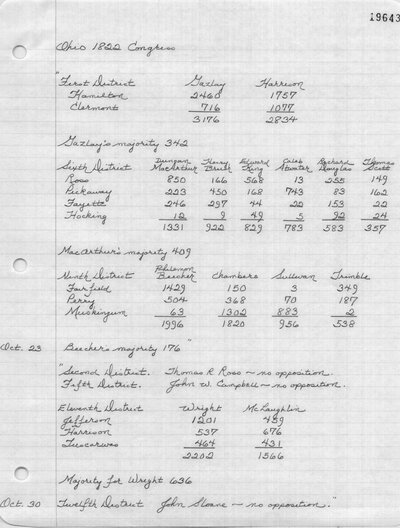 19643
Ohio 1822 Congress
"First District Gazlay Harrison
Hamilton 2460 1757
Clermont 716 1077
3176 2834
Gazlay's majority 342
Sixth District Duncan MacArthur Henry Brush Edward King Caleb Atwater Richard Douglas Thomas Scott
Ross 850 166 568 13 255 149
Pickaway 223 450 168 743 83 162
Fayette 246 297 44 22 153 22
Hocking 12 9 49 5 92 24
1331 922 829 783 583 357
MacArthur's majority 409
Ninth District Philemon Beecher Chambers Sullivan Trimble
Fairfield 1429 150 3 349
Perry 504 368 70 187
Muskingum 63 1302 883 2
1996 1820 956 538
Oct. 23 Beecher's majority 176"
"Second District. Thomas R Ross - no opposition.
Fifth District. John W. Campbell - no opposition.
Eleventh District Wright McLaughlin
Jefferson 1201 459
Harrison 537 676
Tuscarwas 464 431
2202 1566
Majority for Wright 636
Oct. 30 Twelfth District John Sloane - no opposition."